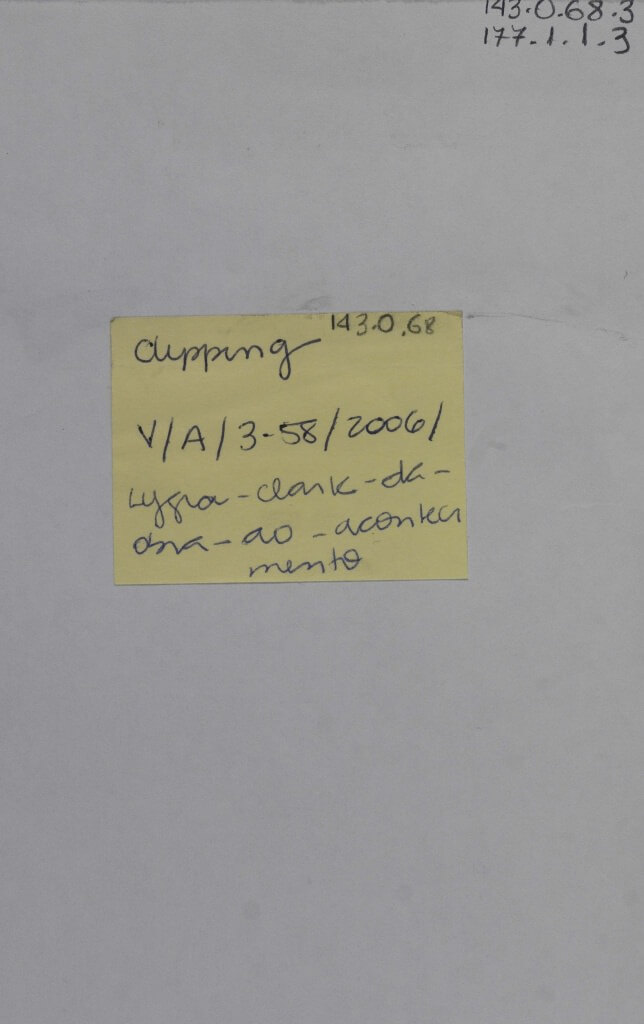 143.0.68.3
177.1.1.3
143.0.68
clipping
V/A/3-58/2006/
Lygia-clark-da-
obra-ao-aconteci
mento